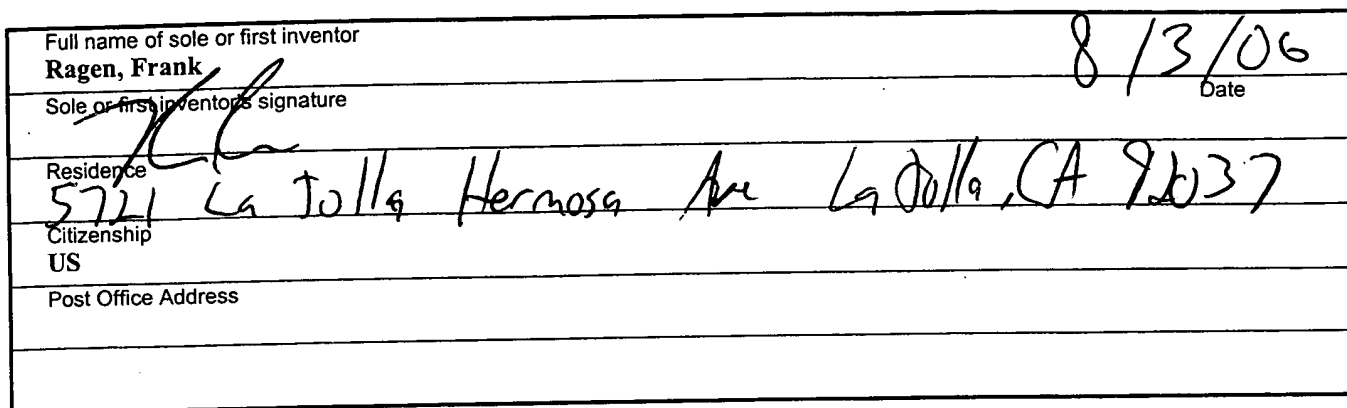 Full name of sole or first inventor
Ragen, Frank
8/3/06
Sole or first inventor's signature
Date
Residence
5721 La Jolla Hermosa Ave La Jolla, CA 92037
Citizenship
US
Post Office Address